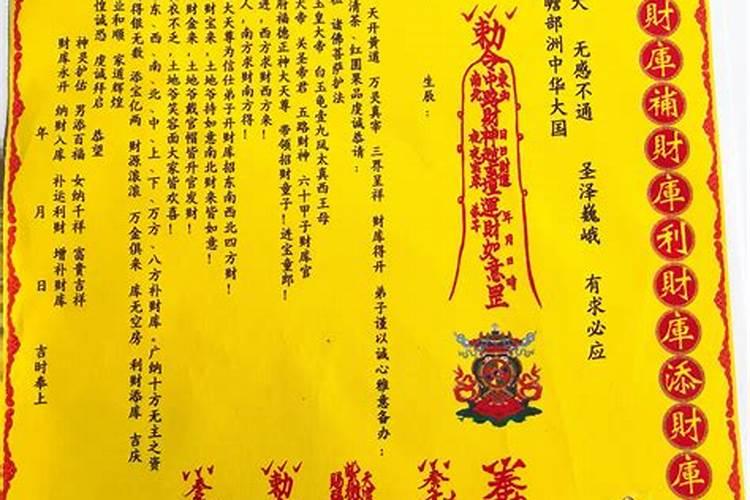 財庫補財庫利財庫添財庫
無感不通 圣泽巍峨 有求必应
瞻部洲中华大国
敕令
中路财神赵玄坛運財如意罡
年月日時
生辰：
天开黄道 万灵真宰 三界呈祥 财库得开 弟子谨以诚心雅意备办：
清茶、红圆果品虔诚恭请：
诸佛菩萨护法
玉皇大帝 白玉龟壹九凤太真西王母
大帝 关圣帝君 五路财神 六十甲子财库官
府福德正神大天尊 带领招财童子！进宝童郎！
进，西方求财西方来！
人，南方求财南方得！
大天尊为信仕弟子开财库招东南西北四方财！
财宝来，土地爷持如意南北财来皆如意！
财金来，土地爷戴官帽皆升官发财！
衣不乏，土地爷笑容面大家皆欢喜！
东、西、南、北、中、上、下、万方、八方补财库。广纳十方无主之资
得银无数 添宝亿两 财源滚滚 万金俱来 库无空房 利财添库 吉庆
业和顺 家道辉煌
惶诚恐 虔诚拜启 恭望
神灵护佑 男添百福 女纳千祥 富贵吉祥
财库永开 纳财入库 补运利财 增补财库
年 月 日 吉时奉上